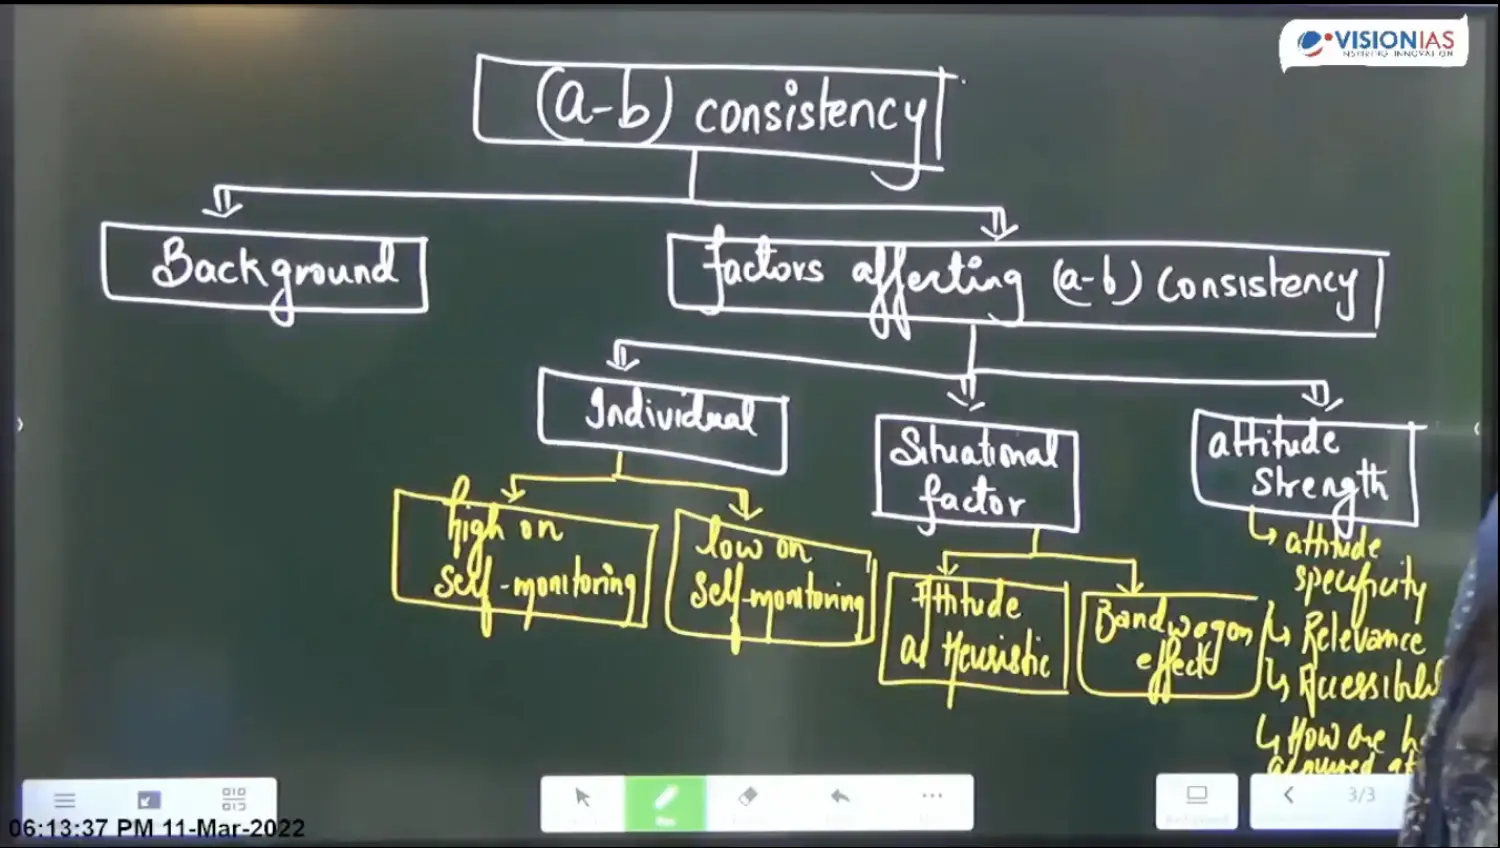 VISIONIAS
INSPIRING INNOVATION
(a-b) consistency
Background
factors affecting (a-b) consistency
Individual
Situational
factor
attitude
strength
high on
self-monitoring
low on
self-monitoring
Attitude
as Heuristic
Bandwagon
effect
↳ attitude
specificity
↳ Relevance
↳
↳ How are
3/3
06:13:37 PM 11-Mar-2022